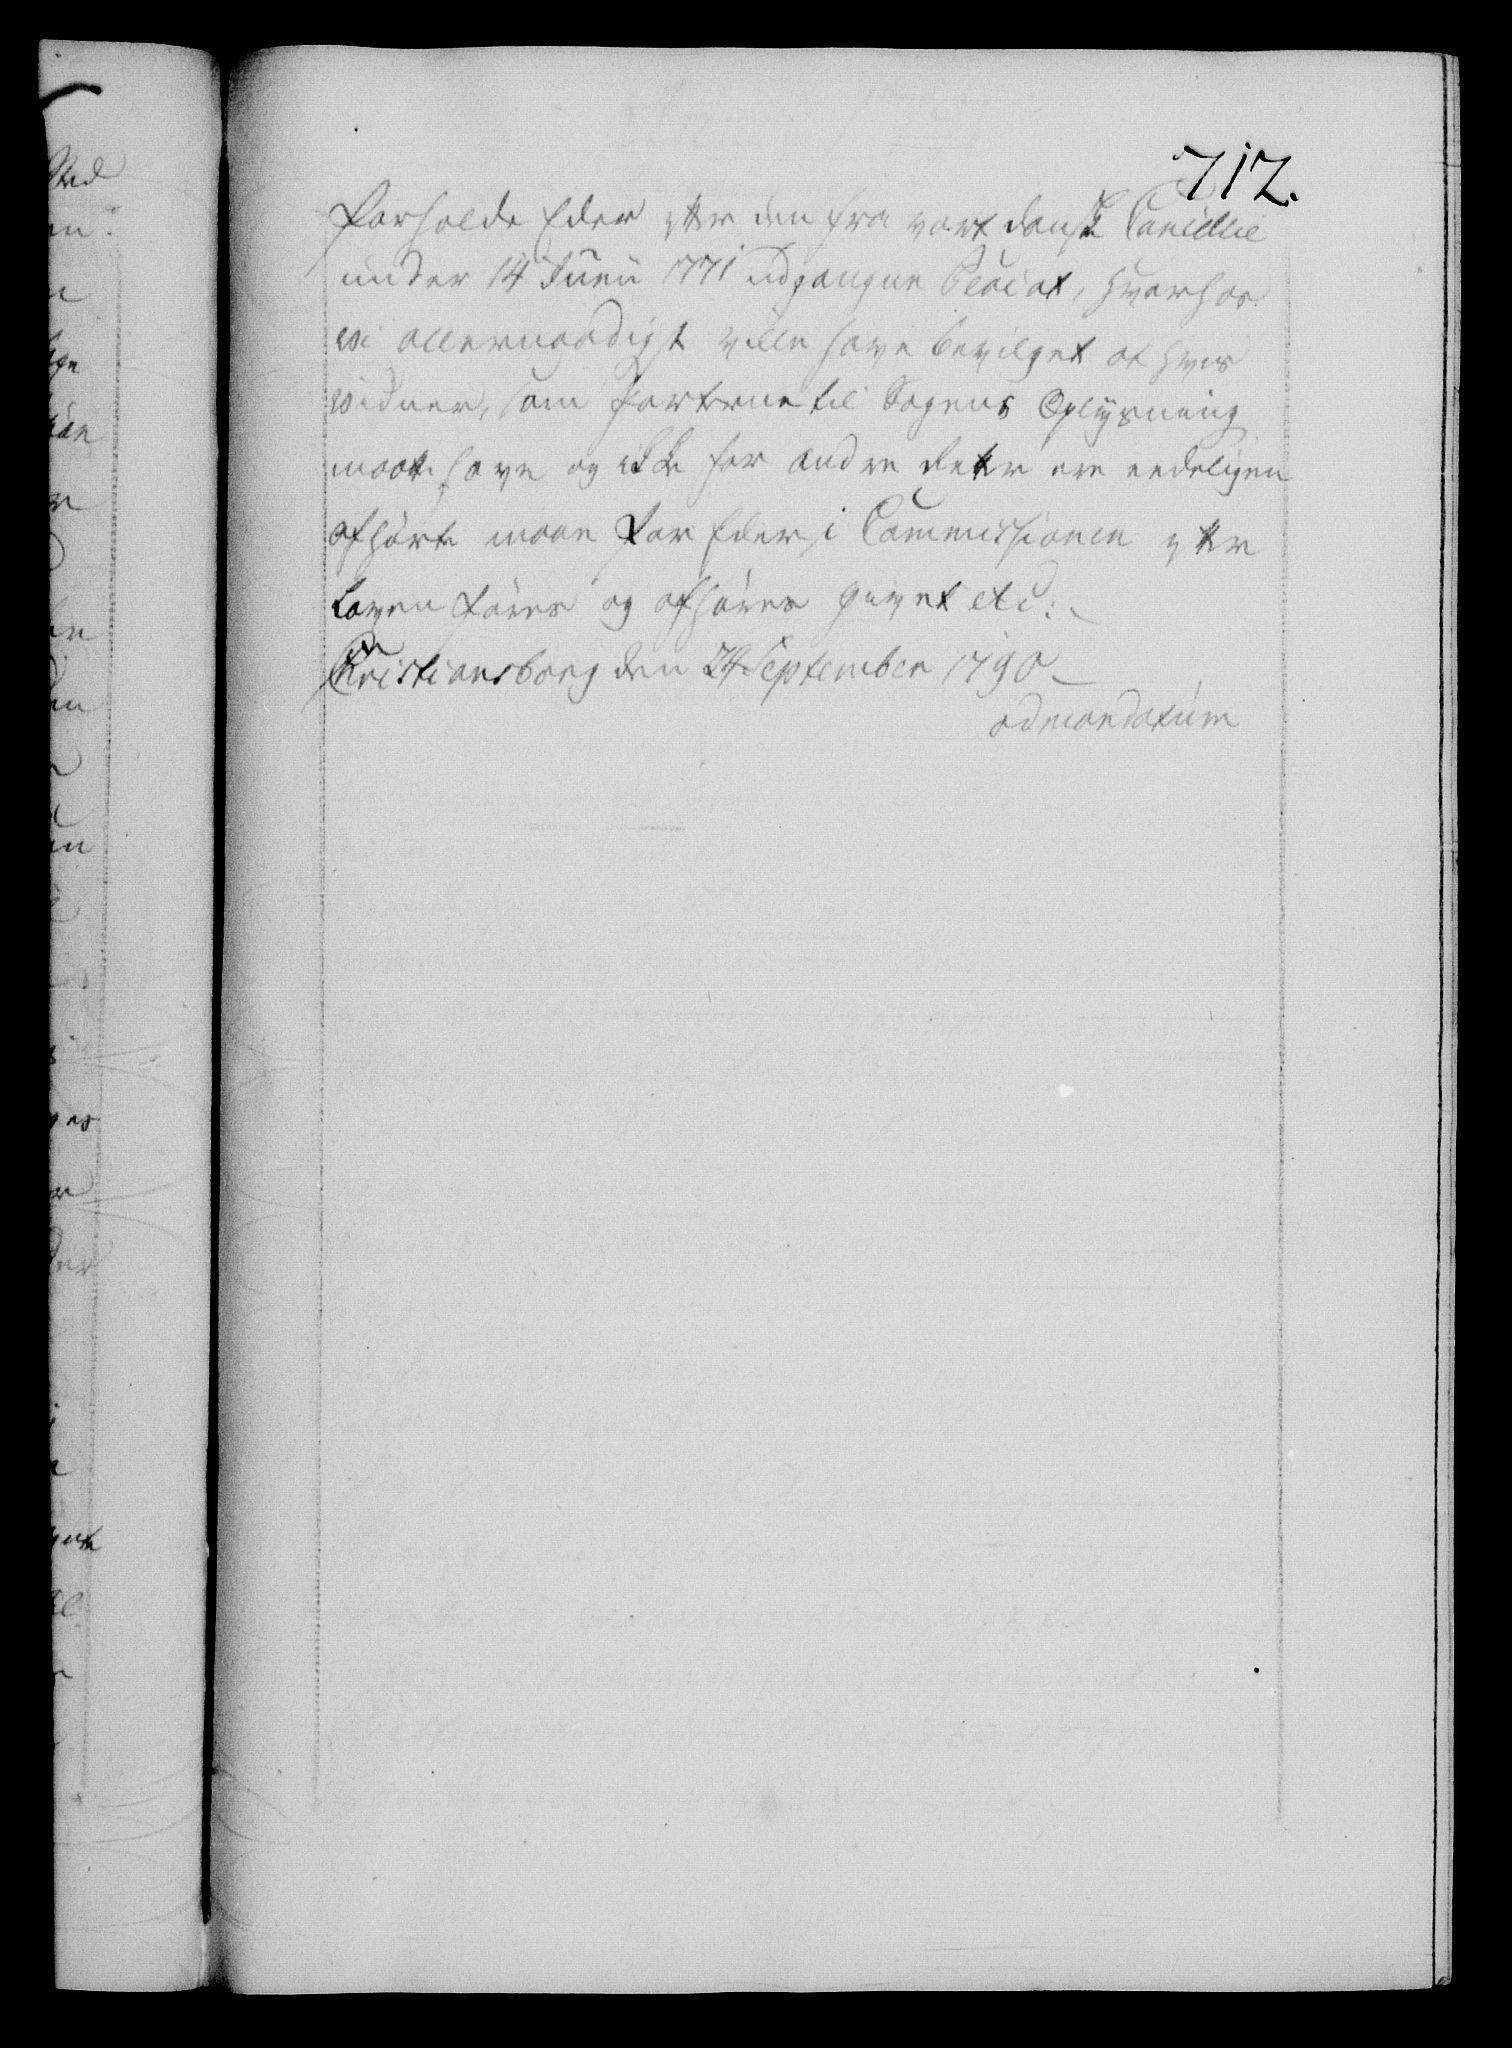 712.
forholde Eder efter den fra vort danske Cancellie
under 14 Junii 1771 udgangne Placat, hvorhos
vi allernaadigst ville have bevilget at hvis
Vidner, som Parterne til Sagens Oplysning
maatte have og ikke for andre Retter ere eedeligen
afhørte maae for Eder i Commissionen efter
Loven føres og afhøres givet etc:
Christiansborg den 24 September 1790
ad mandatum